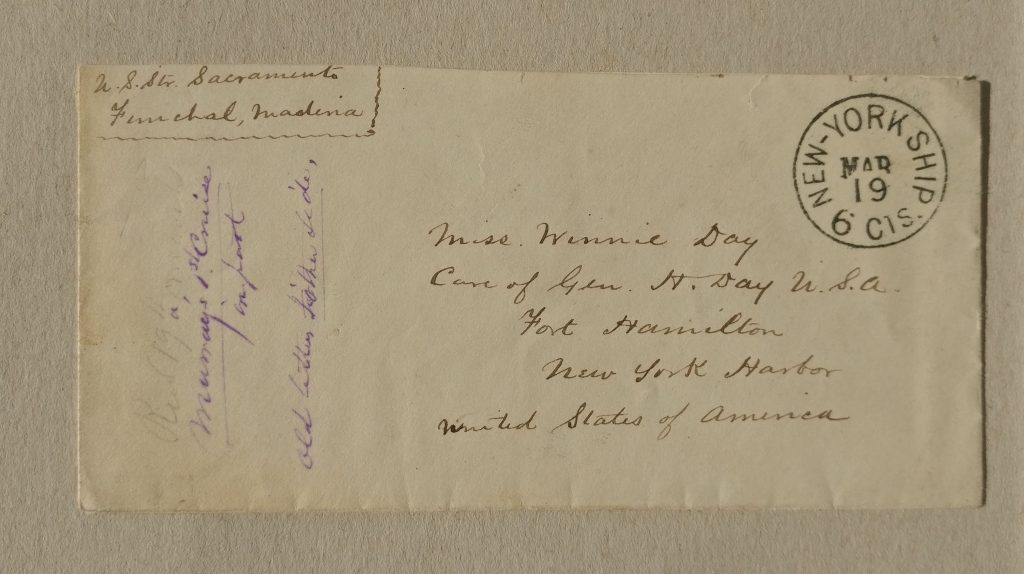 U.S. Str. Sacramento
Funchal, Madeira
NEW-YORK SHIP
MAR
19
6 CTS.
Miss. Winnie Day
Care of Gen. H. Day U.S.A.
Fort Hamilton
New York Harbor
United States of America
a,
Murray's 1st Cruise
in part
old letters
side,